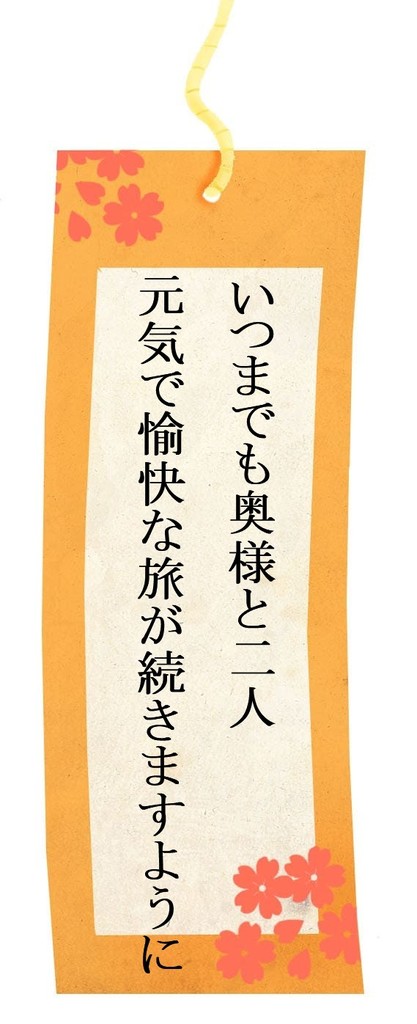 いつまでも奥様と二人
元気で愉快な旅が続きますように